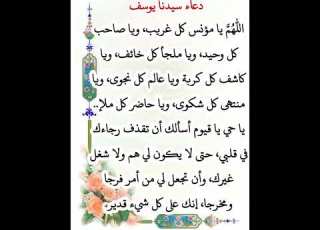 دعاء سيدنا يوسف
اللَّهُمَّ يا مؤنس كل غريب، ويا صاحب
كل وحيد، ويا ملجأ كل خائف، ويا
كاشف كل كربة ويا عالم كل نجوى، ويا
منتهى كل شكوى، ويا حاضر كل ملإ..
يا حي يا قيوم أسألك أن تقذف رجاءك
في قلبي، حتى لا يكون لي هم ولا شغل
غيرك، وأن تجعل لي من أمر فرجا
ومخرجا، إنك على كل شيء قدير.